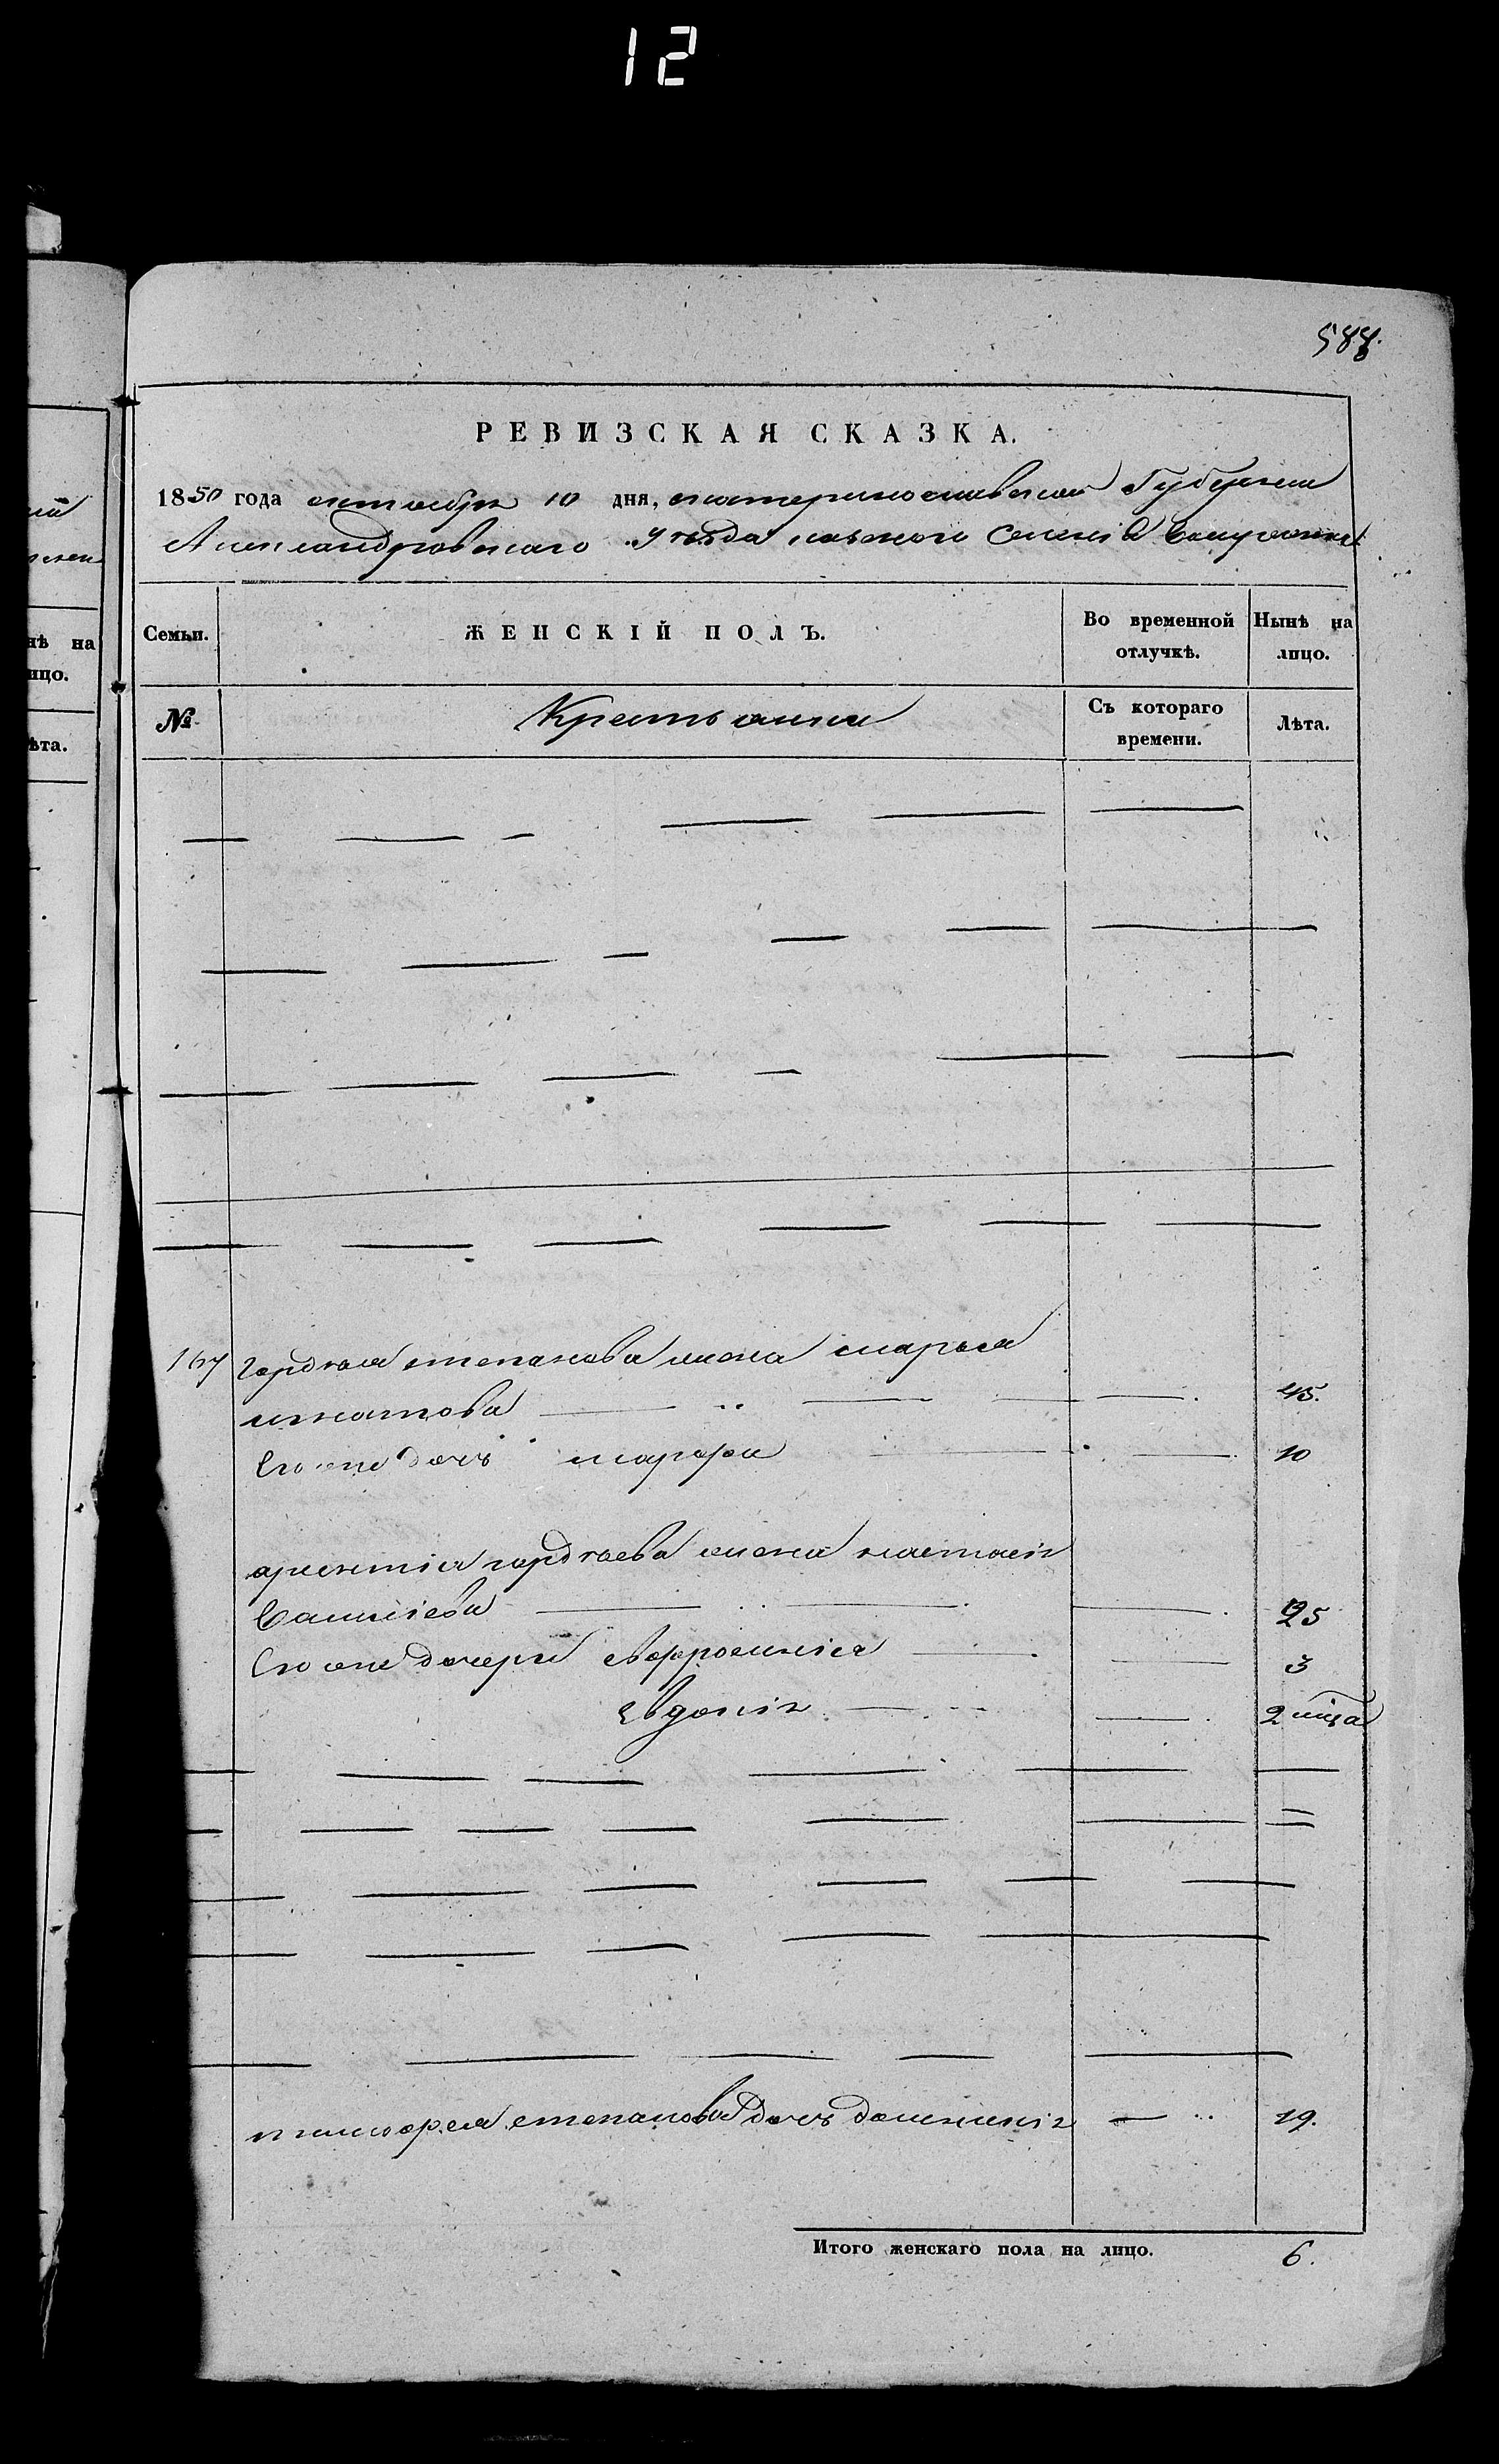 12
588.
РЕВИЗСКАЯ СКАЗКА.
1850 года октября 10 дня, екатеринославской Губернии
Александровского уезда казенного Селения
Семьи.
ЖЕНСКІЙ ПОЛЪ.
Во временной отлучкѣ.
Нынѣ на лицо.
№
Крестьянки
Съ котораго времени.
Лѣта.
гордѣя степанова жена марья
игнатова 45.
Его же дочь марфа 10
арсентія гордѣева жена настасія
Василіева 25
Его же дочери евфросинія 3
Евдокія 2 мца
тимофея степанова дочь домникія 19.
Итого женскаго пола на лицо. 6.
нѣ на
ицо.
ѣта.